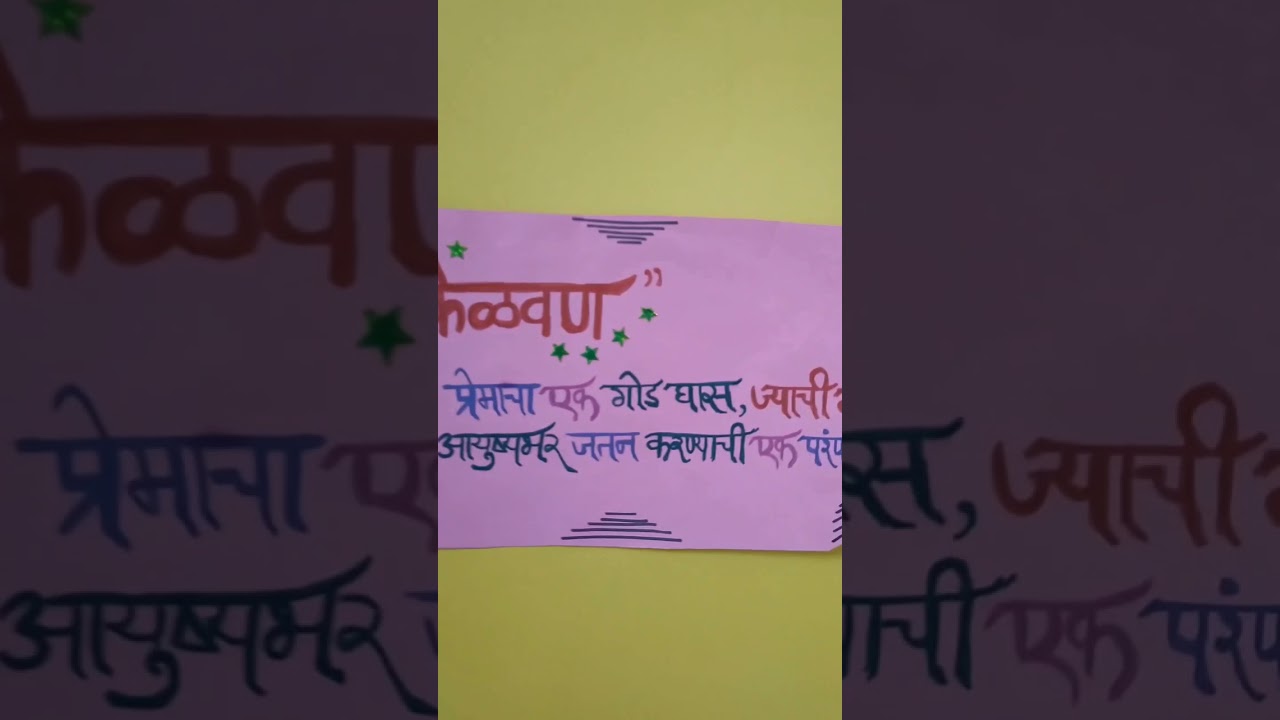 केळवण”
प्रेमाचा एक गोड घास, ज्याची
आयुष्यभर जतन करण्याची एक